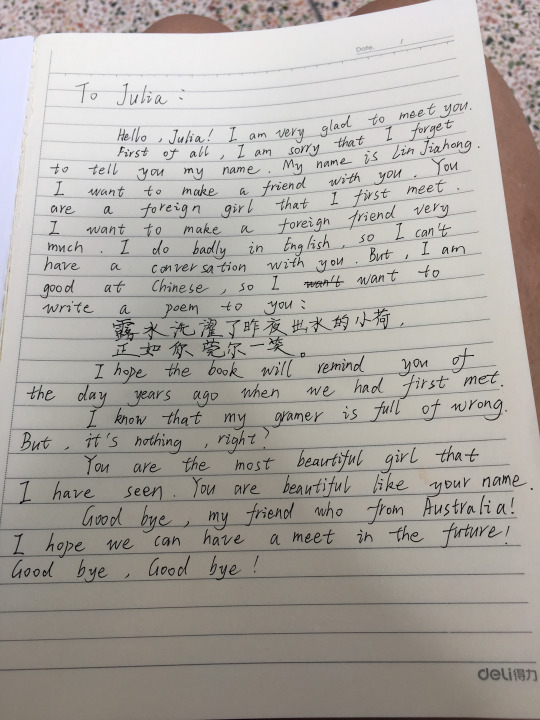 Date. /
To Julia:
Hello, Julia! I am very glad to meet you.
First of all, I am sorry that I forget
to tell you my name. My name is Lin Jiahong.
I want to make a friend with you. You
are a foreign girl that I first meet.
I want to make a foreign friend very
much. I do badly in English, so I can't
have a conversation with you. But, I am
good at Chinese, so I wan't want to
write a poem to you:
露水洗濯了昨夜出水的小荷,
正如你莞尔一笑。
I hope the book will remind you of
the day years ago when we had first met.
I know that my gramer is full of wrong.
But, it's nothing, right?
You are the most beautiful girl that
I have seen. You are beautiful like your name.
Good bye, my friend who from Australia!
I hope we can have a meet in the future!
Good bye, Good bye!
deli得力